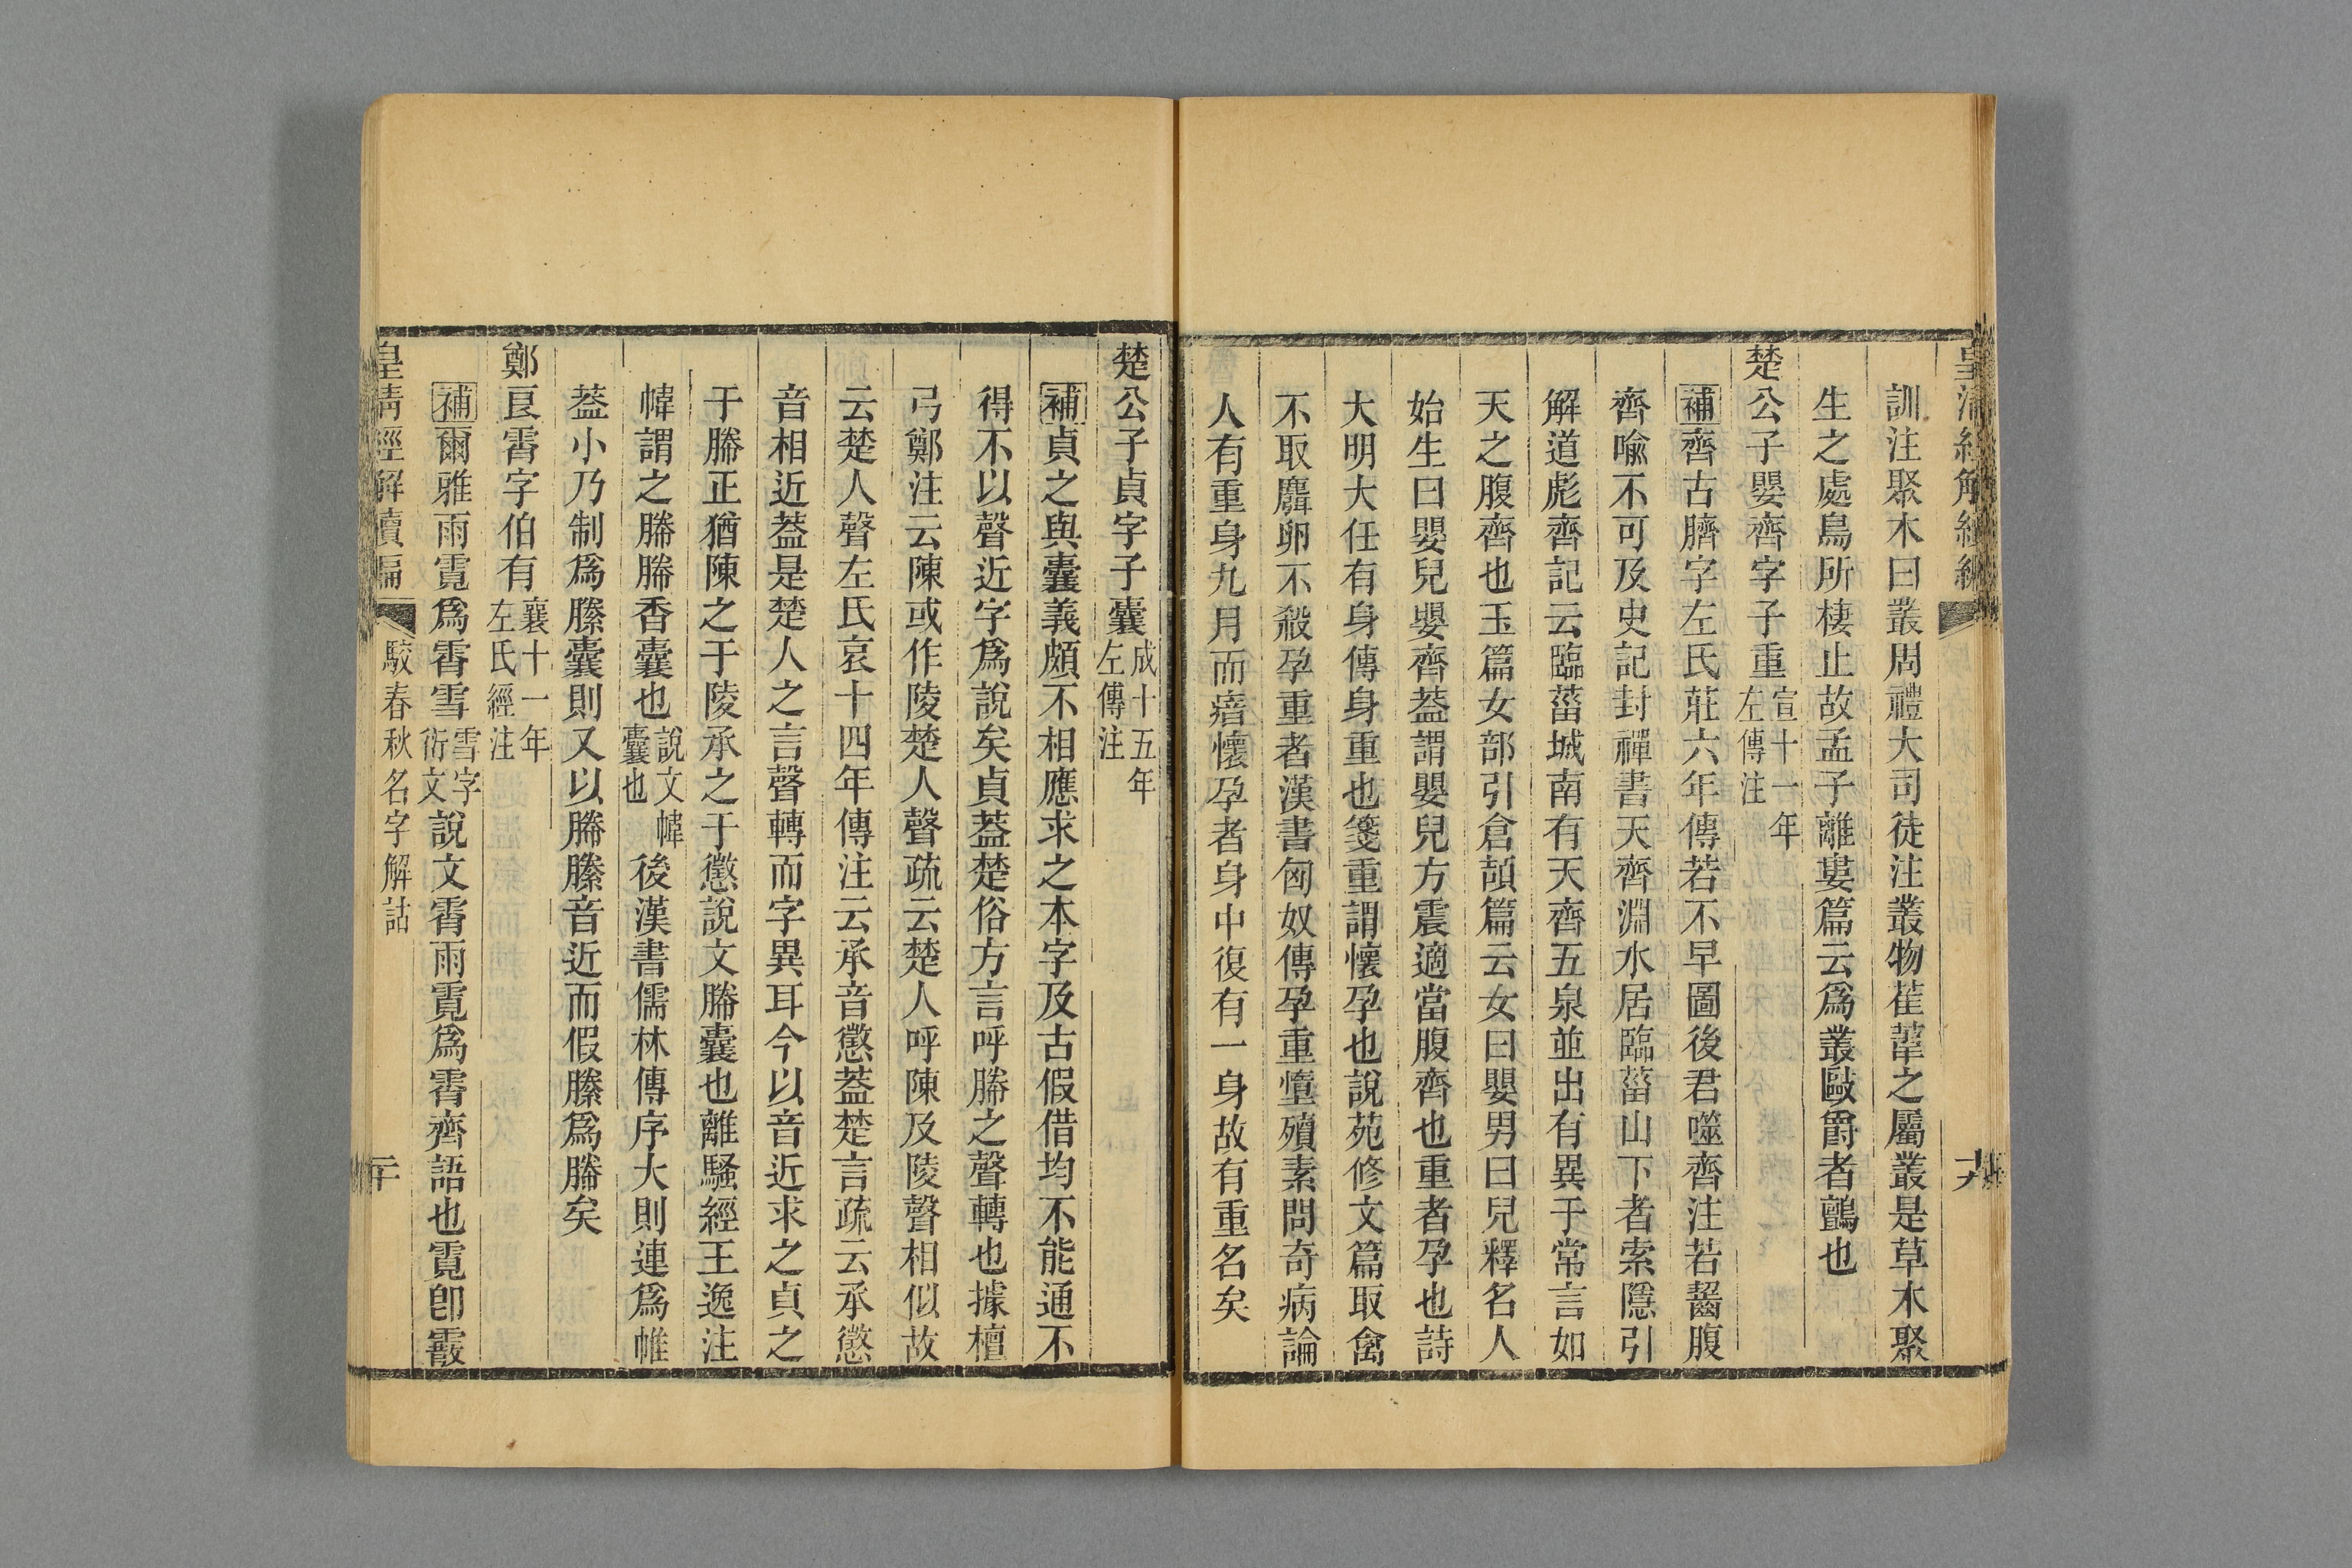 訓注聚木曰叢周禮大司徒注叢物萑葦之屬叢是草木聚
生之處鳥所棲止故孟子離婁篇云爲叢敺爵者鸇也
楚公子嬰齊字子重宣十一年左傳注
補齊古臍字左氏莊六年傳若不早圖後君噬齊注若齧腹
齊喩不可及史記封禪書天齊淵水居臨菑山下者索隱引
解道彪齊記云臨菑城南有天齊五泉並出有異于常言如
天之腹齊也玉篇女部引倉頡篇云女曰嬰男曰兒釋名人
始生曰嬰兒嬰齊葢謂嬰兒方震適當腹齊也重者孕也詩
大明大任有身傳身重也箋重謂懷孕也說苑修文篇取禽
不取麛卵不殺孕重者漢書匈奴傳孕重墯殰素問奇病論
人有重身九月而瘖懷孕者身中復有一身故有重名矣
十九
楚公子貞字子囊成十五年左傳注
補貞之與囊義頗不相應求之本字及古假借均不能通不
得不以聲近字爲說矣貞葢楚俗方言呼幐之聲轉也據檀
弓鄭注云陳或作陵楚人聲疏云楚人呼陳及陵聲相似故
云楚人聲左氏哀十四年傳注云承音懲葢楚言疏云承懲
音相近葢是楚人之言聲轉而字異耳今以音近求之貞之
于幐正猶陳之于陵承之于懲說文幐囊也離騷經王逸注
幃謂之幐幐香囊也說文幃囊也後漢書儒林傳序大則連爲帷
葢小乃制爲縢囊則又以幐縢音近而假縢爲幐矣
鄭良霄字伯有襄十一年左氏經注
補爾雅雨霓爲霄雪雪字衍文說文霄雨霓爲霄齊語也霓卽霰
皇清經解續編
駮春秋名字解詁
二十